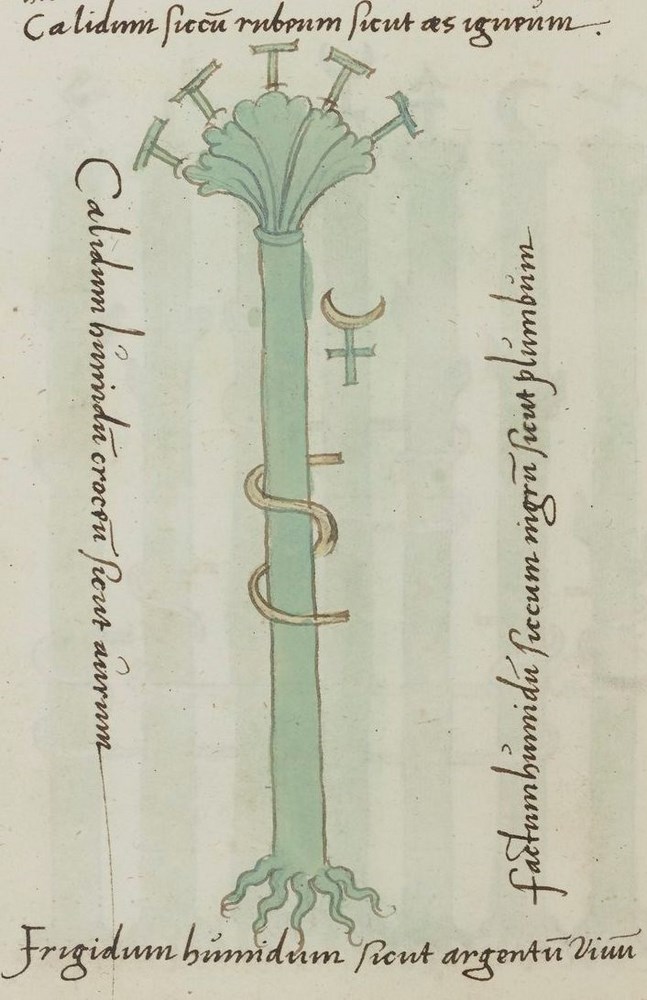 Calidum siccū rubeum sicut æs igneum.
Calidum humidū croceū sicut aurum
factum humidū siccum nigrū sicut plumbum
Frigidum humidum sicut argentū Viuū